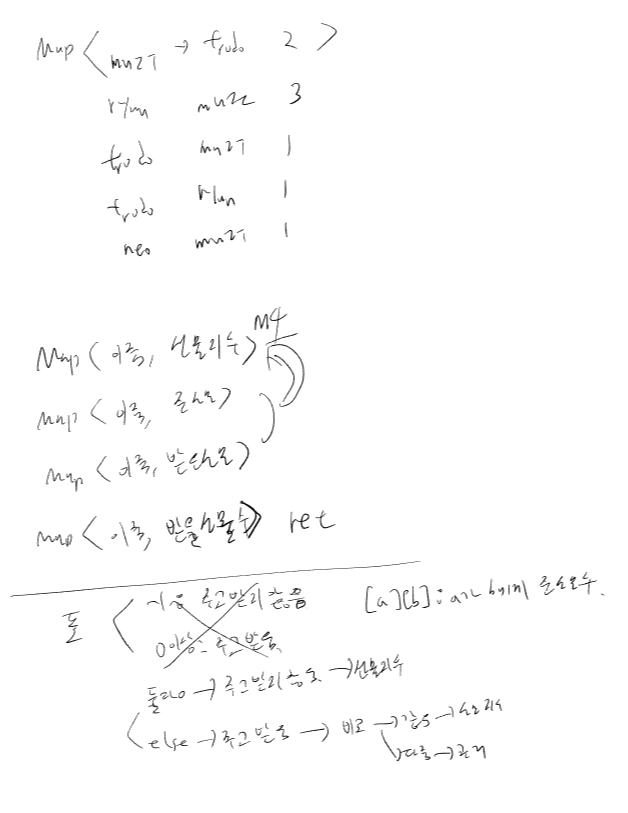 Map < muzi → frodo 2 >
ryan muzi 3
frodo muzi 1
frodo ryan 1
neo muzi 1
M4
Map < 이름, 선물지수 >
Map < 이름, 준선물 >
Map < 이름, 받은선물 >
Map < 이름, 받을선물수 > ret
둘 < 서로 주고받지 않음
[a][b] : a가 b에게 준선물수.
0이상: 주고받음
둘다0 → 주고받지않음 → 선물지수
< else → 주고 받음 → 비교 → 같음 → 선물지수
↳ 다름 →